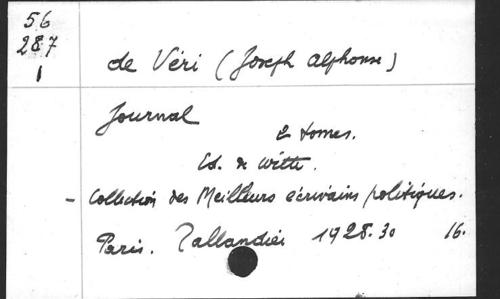 56
287
1
de Véri (Joseph Alphonse)
Journal
2 tomes.
Ed. de Witte.
- Collection des Meilleurs écrivains politiques.
Paris. Tallandier 1928.30 16.